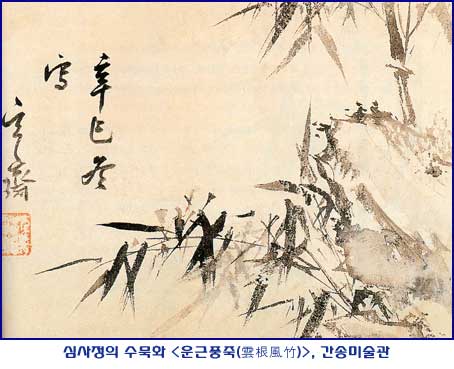 辛巳冬
寫
玄齋
심사정의 수묵화 <운근풍죽(雲根風竹)>, 간송미술관